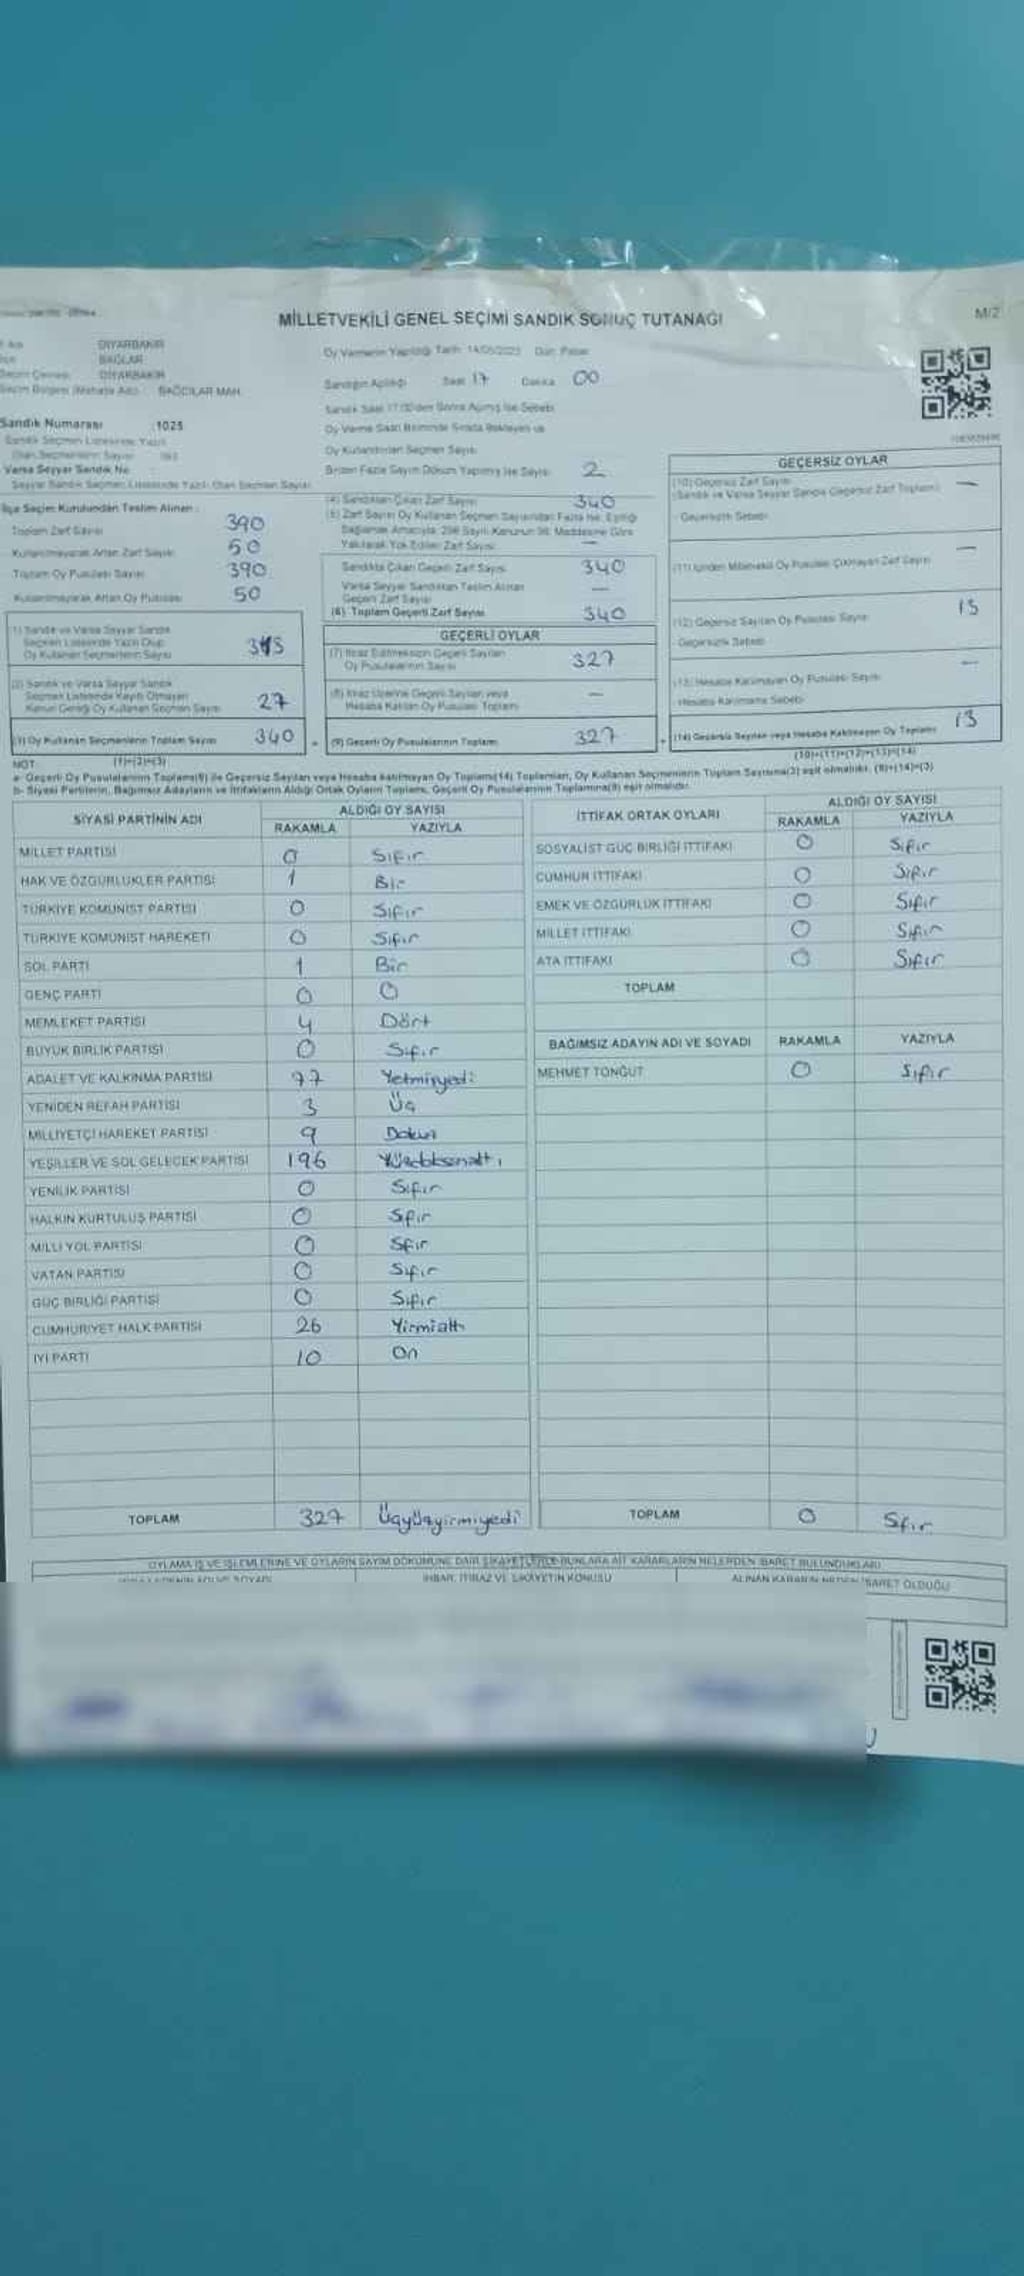 MİLLETVEKİLİ GENEL SEÇİMİ SANDIK SONUÇ TUTANAĞI
M/2
DİYARBAKIR
BAĞLAR
Seçim Çevresi DİYARBAKIR
BAĞCILAR MAH.
Sandık Numarası :1025
Sandık Seçmen Listesinde Yazılı
Olan Seçmenlerin Sayısı
Varsa Seyyar Sandık No
Seyyar Sandık Seçmen Listesinde Yazılı Olan Seçmen Sayısı
Oy Vermenin Yapıldığı Tarih: 14/05/2023 Gün: Pazar
Sandığın Açıldığı Saat 17 Dakika 00
Sandık Saat 17:00'den Sonra Açılmış İse Sebebi
Oy Verme Saati Bitiminde Sırada Bekleyen ve
Oy Kullandırılan Seçmen Sayısı
Birden Fazla Sayım Döküm Yapılmış İse Sayısı 2
İlçe Seçim Kurulundan Teslim Alınan :
Toplam Zarf Sayısı 390
Kullanılmayarak Artan Zarf Sayısı 50
Toplam Oy Pusulası Sayısı 390
Kullanılmayarak Artan Oy Pusulası 50
(1) Sandık ve Varsa Seyyar Sandık
Seçmen Listesinde Yazılı Olup
Oy Kullanan Seçmenlerin Sayısı
(2) Sandık ve Varsa Seyyar Sandık
Seçmen Listesinde Kayıtlı Olmayan
Kanun Gereği Oy Kullanan Seçmen Sayısı 27
(3) Oy Kullanan Seçmenlerin Toplam Sayısı 340
(1)+(2)=(3)
(4) Sandıktan Çıkan Zarf Sayısı 340
(5) Zarf Sayısı Oy Kullanan Seçmen Sayısından Fazla İse, Eşitliği
Sağlamak Amacıyla 298 Sayılı Kanunun 98. Maddesine Göre
Yakılarak Yok Edilen Zarf Sayısı —
Sandıkta Çıkan Geçerli Zarf Sayısı 340
Varsa Seyyar Sandıktan Teslim Alınan
Geçerli Zarf Sayısı —
(6) Toplam Geçerli Zarf Sayısı 340
GEÇERLİ OYLAR
(7) İtiraz Edilmeksizin Geçerli Sayılan
Oy Pusulalarının Sayısı 327
(8) İtiraz Üzerine Geçerli Sayılan veya
Hesaba Katılan Oy Pusulası Toplamı —
(9) Geçerli Oy Pusulalarının Toplamı 327
GEÇERSİZ OYLAR
(10) Geçersiz Zarf Sayısı —
(Sandık ve Varsa Seyyar Sandık Geçersiz Zarf Toplamı)
Geçersizlik Sebebi
(11) İçinden Milletvekili Oy Pusulası Çıkmayan Zarf Sayısı —
(12) Geçersiz Sayılan Oy Pusulası Sayısı 13
Geçersizlik Sebebi
(13) Hesaba Katılmayan Oy Pusulası Sayısı —
Hesaba Katılmama Sebebi
(14) Geçersiz Sayılan veya Hesaba Katılmayan Oy Toplamı 13
(10)+(11)+(12)+(13)=(14)
NOT
a- Geçerli Oy Pusulalarının Toplamı(9) ile Geçersiz Sayılan veya Hesaba katılmayan Oy Toplamı(14) Toplamları, Oy Kullanan Seçmenlerin Toplam Sayısına(3) eşit olmalıdır. (9)+(14)=(3)
b- Siyasi Partilerin, Bağımsız Adayların ve İttifakların Aldığı Ortak Oyların Toplamı, Geçerli Oy Pusulalarının Toplamına(9) eşit olmalıdır.
SİYASİ PARTİNİN ADI ALDIĞI OY SAYISI
RAKAMLA YAZIYLA
MİLLET PARTİSİ 0 Sıfır
HAK VE ÖZGÜRLÜKLER PARTİSİ 1 Bir
TÜRKİYE KOMÜNİST PARTİSİ 0 Sıfır
TÜRKİYE KOMÜNİST HAREKETİ 0 Sıfır
SOL PARTİ 1 Bir
GENÇ PARTİ 0 0
MEMLEKET PARTİSİ 4 Dört
BÜYÜK BİRLİK PARTİSİ 0 Sıfır
ADALET VE KALKINMA PARTİSİ 77 Yetmişyedi
YENİDEN REFAH PARTİSİ 3 Üç
MİLLİYETÇİ HAREKET PARTİSİ 9 Dokuz
YEŞİLLER VE SOL GELECEK PARTİSİ 196
YENİLİK PARTİSİ 0 Sıfır
HALKIN KURTULUŞ PARTİSİ 0 Sıfır
MİLLİ YOL PARTİSİ 0 Sfır
VATAN PARTİSİ 0 Sıfır
GÜÇ BİRLİĞİ PARTİSİ 0 Sıfır
CUMHURİYET HALK PARTİSİ 26 Yirmialtı
İYİ PARTİ 10 On
TOPLAM 327 Üçyüzyirmiyedi
İTTİFAK ORTAK OYLARI ALDIĞI OY SAYISI
RAKAMLA YAZIYLA
SOSYALİST GÜÇ BİRLİĞİ İTTİFAKI 0 Sıfır
CUMHUR İTTİFAKI 0 Sıfır
EMEK VE ÖZGÜRLÜK İTTİFAKI 0 Sıfır
MİLLET İTTİFAKI 0 Sıfır
ATA İTTİFAKI 0 Sıfır
TOPLAM
BAĞIMSIZ ADAYIN ADI VE SOYADI RAKAMLA YAZIYLA
MEHMET TONĞUT 0 Sıfır
TOPLAM 0 Sfır
OYLAMA İŞ VE İŞLEMLERİNE VE OYLARIN SAYIM DÖKÜMÜNE DAİR ŞİKAYETLERLE BUNLARA AİT KARARLARIN NELERDEN İBARET BULUNDUKLARI
İHBAR, İTİRAZ VE ŞİKAYETİN KONUSU
ALINAN KARARIN NEDEN İBARET OLDUĞU